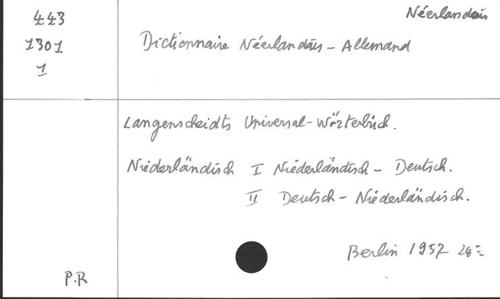 443
1301
1
Néerlandais
Dictionnaire Néerlandais - Allemand
Langenscheidts Universal-Wörterbuch.
Niederländisch I Niederländisch - Deutsch.
II Deutsch - Niederländisch.
Berlin 1957
P.R